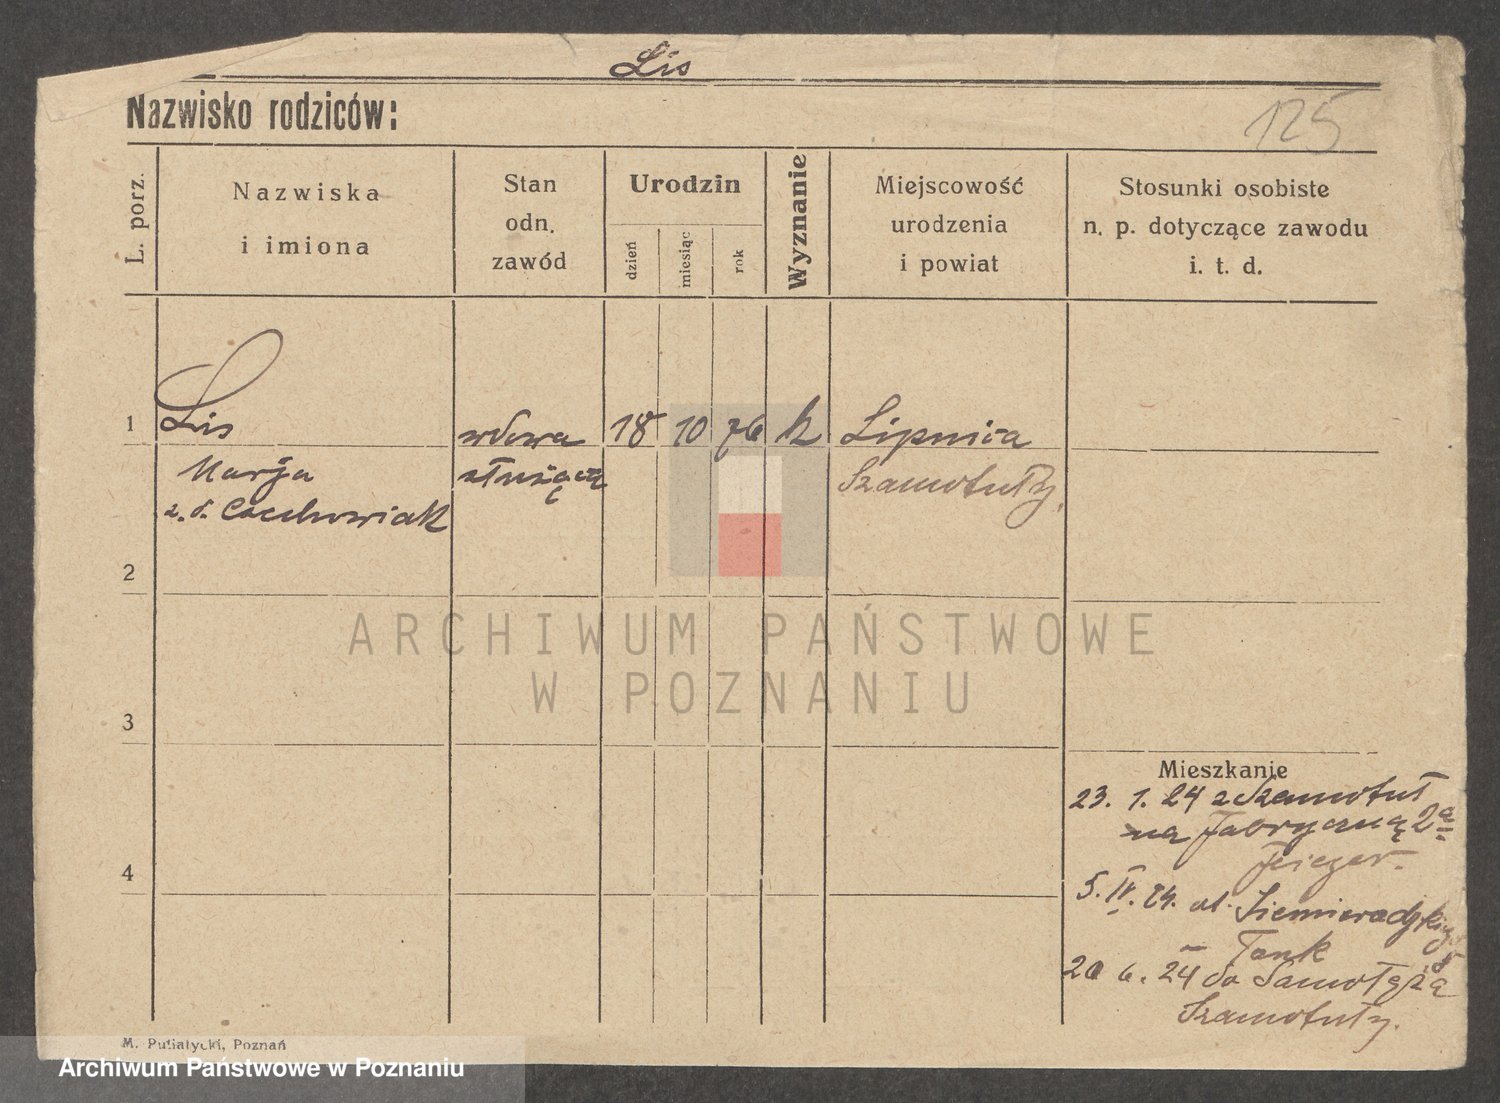 Lis
Nazwisko rodziców:
125
L. porz.
Nazwiska
i imiona
Stan
odn.
zawód
Urodzin
dzień
miesiąc
rok
Wyznanie
Miejscowość
urodzenia
i powiat
Stosunki osobiste
n. p. dotyczące zawodu
i. t. d.
1
Lis
wdowa
18
10
76
k
Lipnica
Marja
służąca
Szamotuły.
z. d. Czechowiak
2
ARCHIWUM PAŃSTWOWE
W POZNANIU
3
Mieszkanie
23. 1. 24 z Szamotuł
na Fabryczną 2a
4
5. IV. 24. ul. Siemiradzkiego
Tank
20 6. 24 do Samołęża
Szamotuły.
M. Putiatycki, Poznań
Archiwum Państwowe w Poznaniu